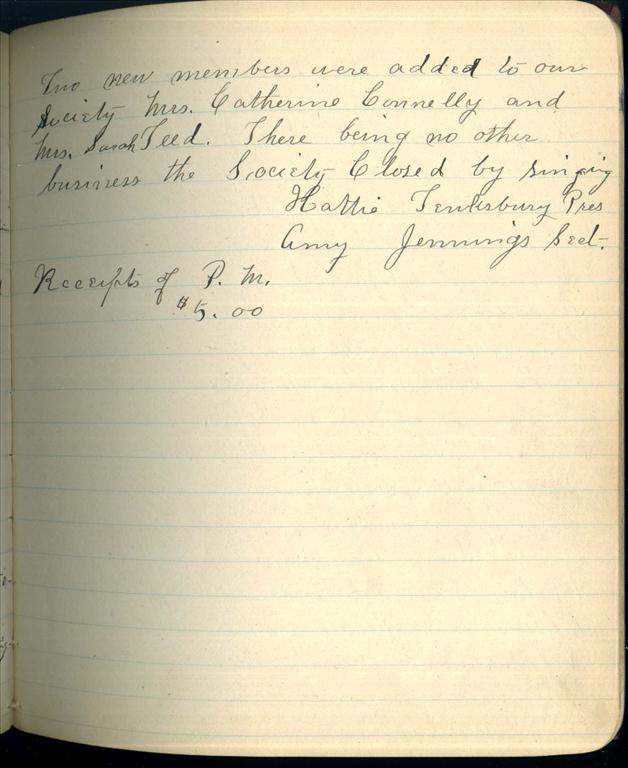 Two new members were added to our
Society Mrs. Catherine Connelly and
Mrs. Sarah Teed. There being no other
business the Society Closed by singing
Hattie Tewksbury Pres
Amy Jennings Sect.
Receipts of P. M.
$5.00